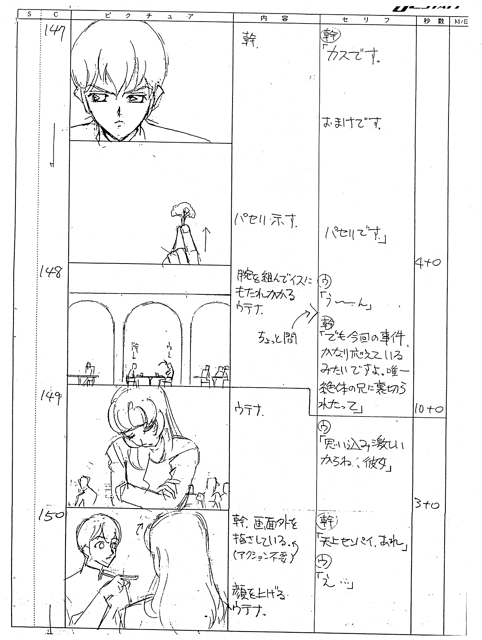 S
C
ピクチュア
内容
セリフ
秒数
M/E
147
幹.
幹
「カスです。
おまけです。
パセリ示す.
パセリです」
4+0
148
腕を組んでイスに
もたれかかる
ウテナ.
ちょっと間
ウ
「う〜〜ん」
幹
「でも今回の事件,
かなり応えている
みたいですよ。唯一
絶体の兄に裏切ら
れたって」
10+0
149
ウテナ.
ウ
「思い込み激しい
からね、彼女」
3+0
150
幹. 画面外を
指さしている.
(アクション不要)
顔を上げる
ウテナ.
幹
「天上センパイ、あれ」
ウ
「え…」